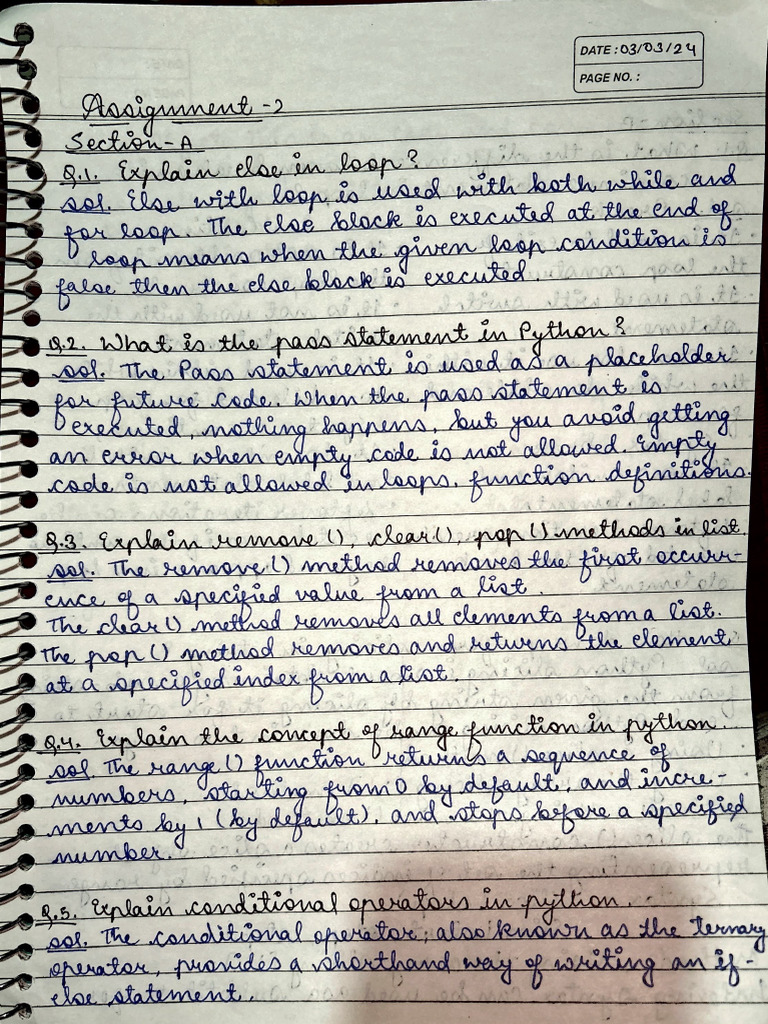 DATE: 03/03/24
PAGE NO.:
Assignment -2
Section-A
Q.1. Explain else in loop?
sol. Else with loop is used with both while and
for loop. The else block is executed at the end of
loop means when the given loop condition is
false then the else block is executed.
Q.2. What is the pass statement in Python?
sol. The Pass statement is used as a placeholder
for future code. When the pass statement is
executed, nothing happens, but you avoid getting
an error when empty code is not allowed. Empty
code is not allowed in loops, function definitions.
Q.3. Explain remove (), clear(), pop () methods in list.
sol. The remove () method removes the first occurr-
ence of a specified value from a list.
The clear () method removes all elements from a list.
The pop () method removes and returns the element
at a specified index from a list.
Q.4. Explain the concept of range function in python.
sol. The range () function returns a sequence of
numbers, starting from 0 by default, and incre-
ments by 1 (by default), and stops before a specified
number.
Q.5. Explain conditional operators in python.
sol. The conditional operator, also known as the ternary
operator, provides a shorthand way of writing an if-
else statement.